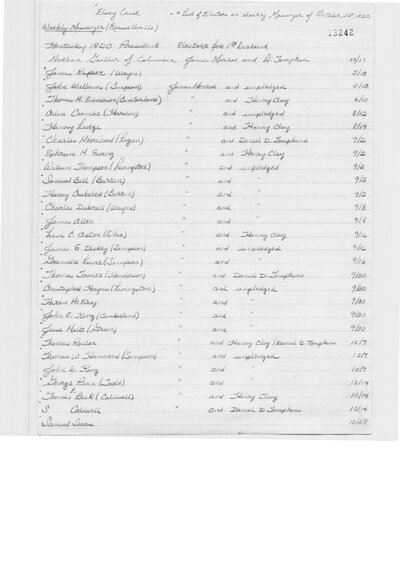 * List of Electors in Weekly Messenger of October 28, 1820.
13242
Weekly Messenger (Russellville)
Kentucky 1820 President Electors for 1st District
of Columbia James Monroe and D. Tompkins
James (Wayne) " " 5/13
John (Simpson) James Monroe and unpledged 5/13
Thomas H. (Cumberland) " and Henry Clay 6/10
Coombs (Hardin) " and unpledged 8/12
" and Henry Clay 8/19
Charles (Logan) " and Daniel D. Tompkins 9/2
Ephraim H. Ewing " and Henry Clay 9/2
Thompson (Livingston) " and unpledged 9/2
Samuel Bell (Barren) " and " 9/2
Henry Crutcher (Barren) " and " 9/2
Charles (Wayne) " and " 9/8
James Allen " and " 9/8
" and Henry Clay 9/16
James G. Dickey (Simpson) " and unpledged 9/16
Granville Lewis (Simpson) " and " 9/16
Thomas Towles (Henderson) " and Daniel D. Tompkins 9/30
Christopher Haynes (Livingston) " and unpledged 9/30
Hiram McElroy " and " 9/30
John E. King (Cumberland) " and " 9/30
(Green) " and " 9/30
Thomas " and Henry Clay/Daniel D. Tompkins 10/7
Thomas W. Hammond (Simpson) " and unpledged 10/7
John E. King " and " 10/7
George (Todd) " and " 10/14
Thomas Beck (Caldwell) " and Henry Clay 10/14
S Caldwell " and Daniel D. Tompkins 10/14
Samuel 10/28